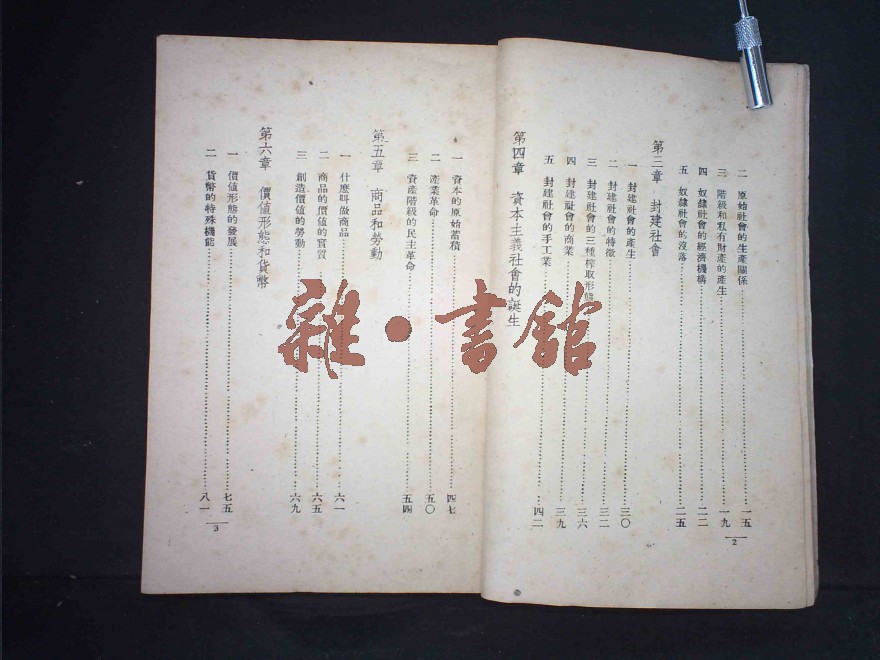 二 原始社會的生產關係…………一五
三 階級和私有財產的產生…………一九
四 奴隸社會的經濟機構…………二二
五 奴隸社會的沒落…………二五
第三章 封建社會
一 封建社會的產生…………三〇
二 封建社會的特徵…………三二
三 封建社會的三種榨取形態…………三六
四 封建社會的商業…………三九
五 封建社會的手工業…………四二
第四章 資本主義社會的誕生
2
一 資本的原始蓄積…………四七
二 產業革命…………五〇
三 資產階級的民主革命…………五四
第五章 商品和勞動
一 什麽叫做商品…………六一
二 商品的價値的實質…………六五
三 創造價値的勞動…………六九
第六章 價値形態和貨幣
一 價値形態的發展…………七五
二 貨幣的特殊機能…………八一
3
雜·書舘